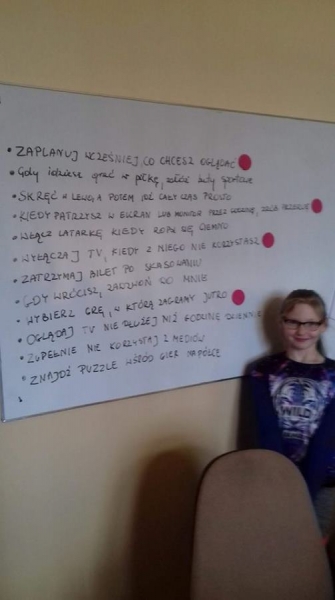 • ZAPLANUJ WCZEŚNIEJ, CO CHCESZ OGLĄDAĆ
• Gdy idziesz grać w piłkę, załóż buty sportowe
• SKRĘĆ W LEWO, A POTEM IDŹ CAŁY CZAS PROSTO
• KIEDY PATRZYSZ W EKRAN LUB MONITOR PRZEZ GODZINĘ, ZRÓB PRZERWĘ
• WŁĄCZ LATARKĘ KIEDY ROBI SIĘ CIEMNO
• WYŁĄCZAJ TV, KIEDY Z NIEGO NIE KORZYSTASZ
• ZATRZYMAJ BILET PO SKASOWANIU
• GDY WRÓCISZ, ZADZWOŃ DO MNIE
• WYBIERZ GRĘ, W KTÓRĄ ZAGRAMY JUTRO
• OGLĄDAJ TV NIE DŁUŻEJ NIŻ GODZINĘ DZIENNIE
• ZUPEŁNIE NIE KORZYSTAJ Z MEDIÓW
• ZNAJDŹ PUZZLE WŚRÓD GIER NA PÓŁCE
WILD